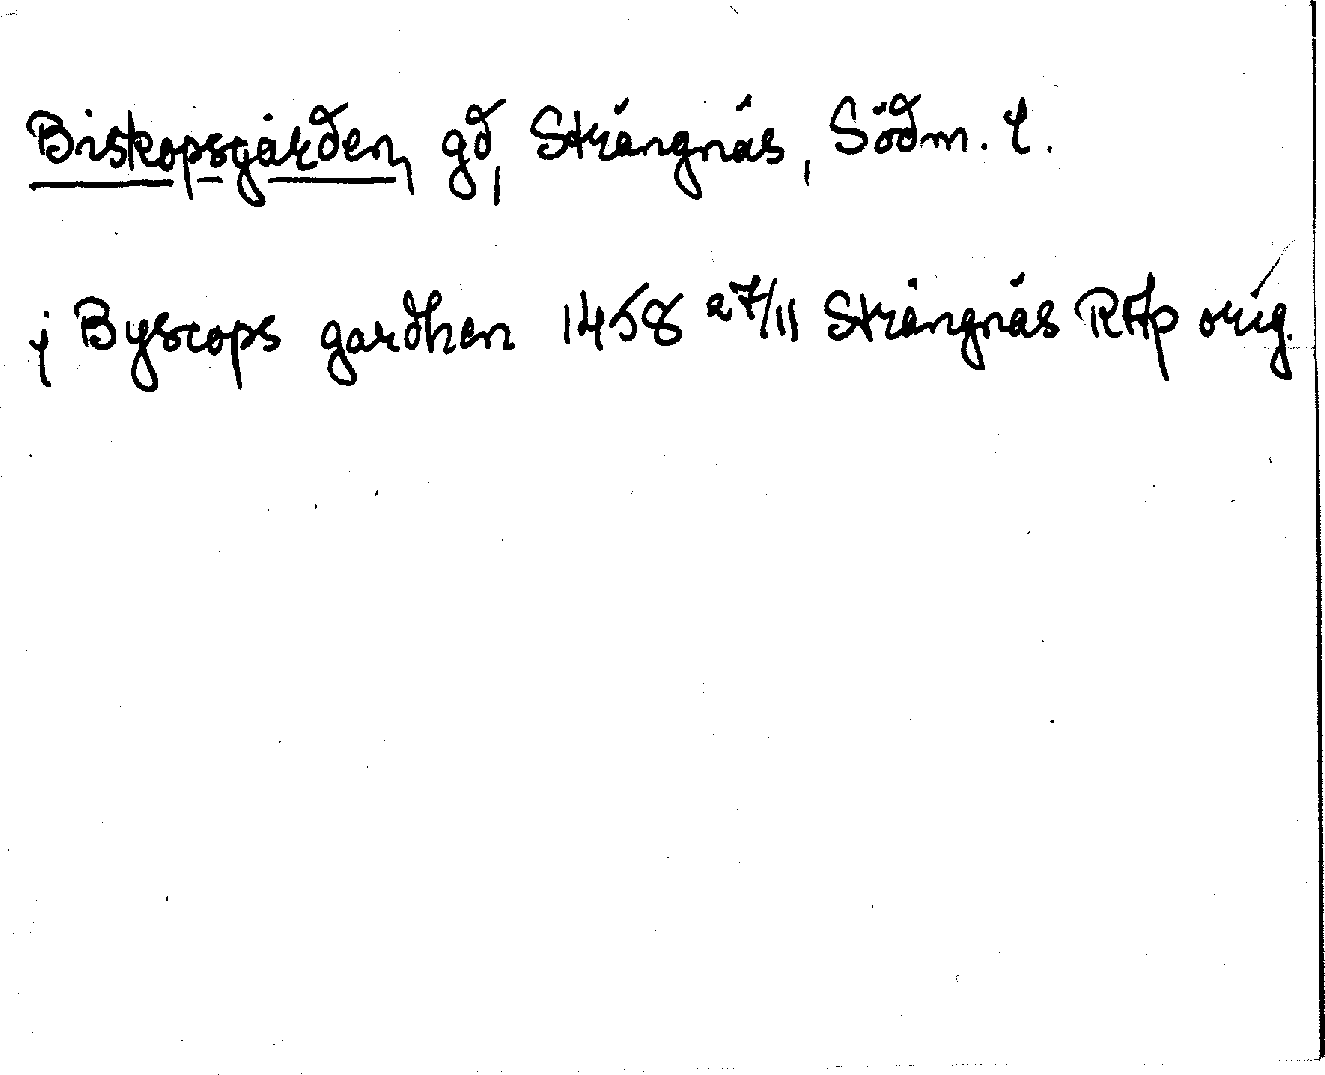 Biskopsgården, gd, Strängnäs, Södm. l.
j Byscops gardhen 1458 27/11 Strängnäs RAp orig.